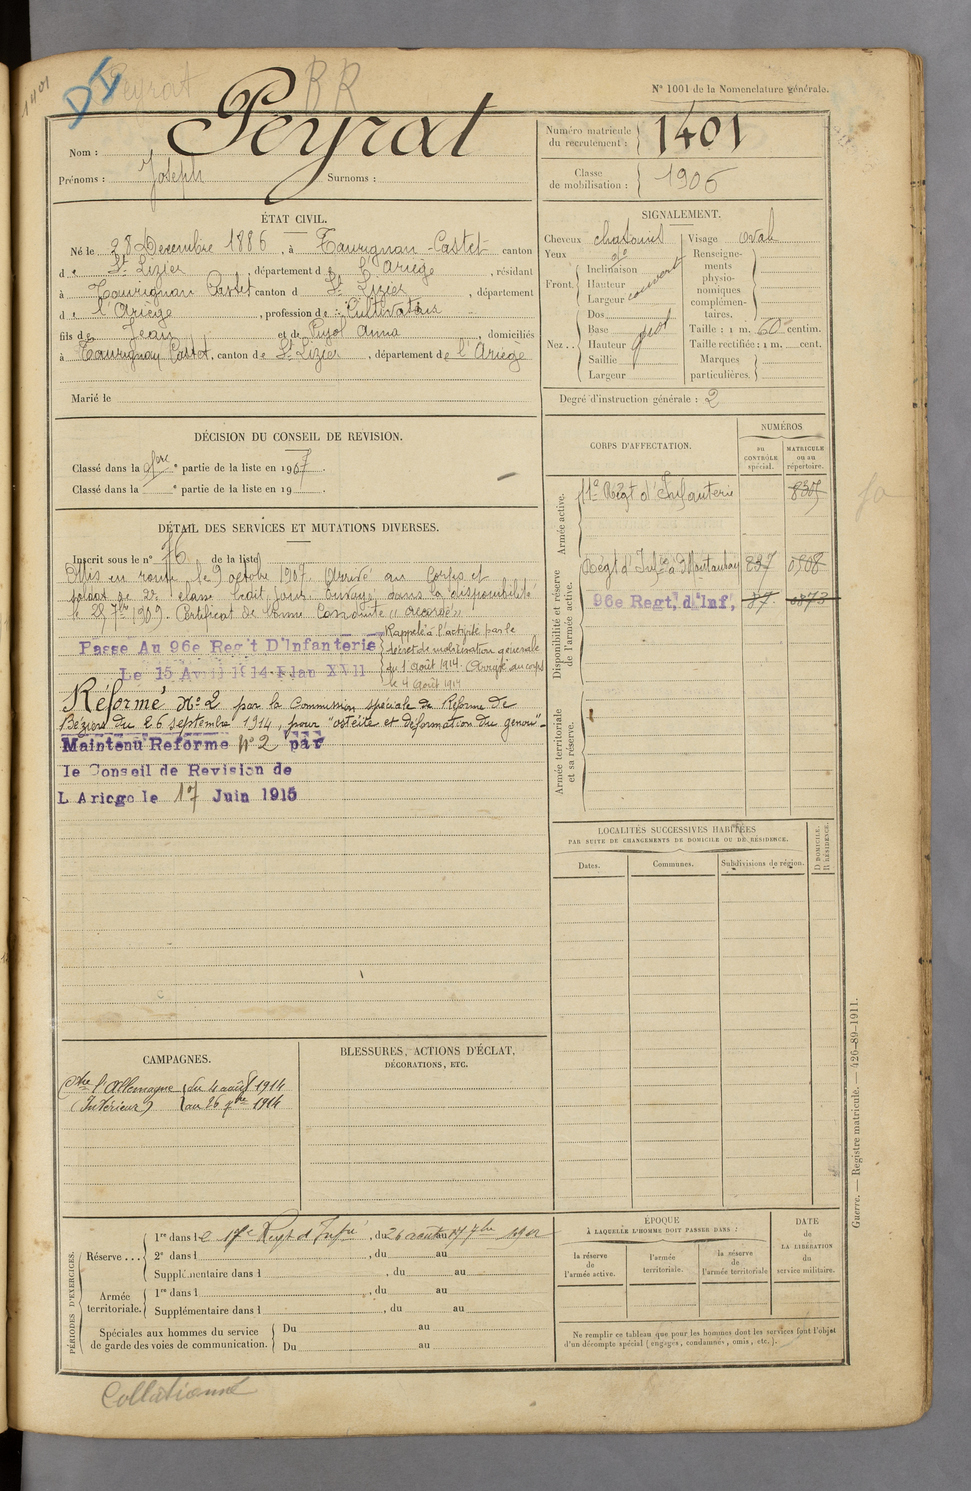 1401
Peyrat
BR
N° 1001 de la Nomenclature générale.
Nom : Peyrat
Prénoms : Joseph Surnoms :
Numéro matricule du recrutement : 1401
Classe de mobilisation : 1906
ÉTAT CIVIL.
Né le 28 Décembre 1886, à Taurignan-Castet canton
d e St Lizier, département d e l'Ariège, résidant
à Taurignan Castet canton d e St Lizier, département
d e l'Ariège, profession de Cultivateur
fils de Jean et de Pujol Anna, domiciliés
à Taurignan Castet, canton de St Lizier, département de l'Ariège
Marié le
SIGNALEMENT.
Cheveux chatains
Yeux do
Front. Inclinaison
Hauteur
Largeur couvert
Nez.. Dos
Base
Hauteur
Saillie
Largeur
Visage oval
Renseignements physionomiques complémentaires.
Taille : 1 m. 60 centim.
Taille rectifiée : 1 m. cent.
Marques particulières.
Degré d'instruction générale : 2
DÉCISION DU CONSEIL DE REVISION.
Classé dans la 1ère partie de la liste en 1907.
Classé dans la e partie de la liste en 19
DÉTAIL DES SERVICES ET MUTATIONS DIVERSES.
Inscrit sous le n° 76 de la liste
Mis en route le 9 octobre 1907. Arrivé au Corps et
soldat de 2e classe ledit jour. Envoyé dans la disponibilité
le 28 7bre 1909. Certificat de bonne Conduite "accordé"
Passe Au 96e Reg't D'Infanterie
Le 15 Avril 1914 Plan XVII
Rappelé à l'activité par le
décret de mobilisation générale
du 1 août 1914. Arrivé au corps
le 4 août 1914
Réformé N° 2 par la Commission spéciale de Réforme de
Béziers du 26 septembre 1914, pour "ostéite et déformation du genou"
Maintenu Reforme N° 2 par
le Conseil de Revision de
L Ariege le 17 Juin 1915
CORPS D'AFFECTATION.
NUMÉROS
au CONTRÔLE spécial.
MATRICULE ou au répertoire.
Armée active.
Régt d'Infanterie
Disponibilité et réserve de l'armée active.
Régt d'Infie à Montauban
96e Regt, d'Inf,
Armée territoriale et sa réserve.
LOCALITÉS SUCCESSIVES HABITÉES
PAR SUITE DE CHANGEMENTS DE DOMICILE OU DE RÉSIDENCE.
Dates. Communes. Subdivisions de région.
D DOMICILE. R RÉSIDENCE.
CAMPAGNES.
Ctre l'Allemagne du 4 août 1914
(Intérieur) au 26 7bre 1914
BLESSURES, ACTIONS D'ÉCLAT,
DÉCORATIONS, ETC.
PÉRIODES D'EXERCICES.
Réserve... 1re dans l e Regt d'Infie, du 26 août au 17 7bre 1912
2e dans l , du au
Supplémentaire dans l , du au
Armée territoriale. 1re dans l , du au
Supplémentaire dans l , du au
Spéciales aux hommes du service de garde des voies de communication. Du au
Du au
ÉPOQUE
À LAQUELLE L'HOMME DOIT PASSER DANS :
la réserve de l'armée active.
l'armée territoriale.
la réserve de l'armée territoriale
DATE de LA LIBÉRATION du service militaire.
Ne remplir ce tableau que pour les hommes dont les services font l'objet
d'un décompte spécial (engagés, condamnés, omis, etc.).
Guerre. — Registre matricule. — 426-89-1911.
Collationné